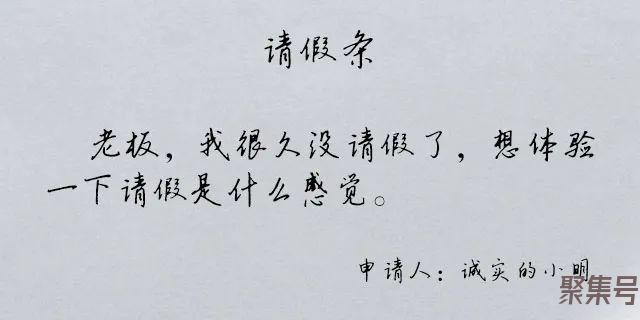 请假条
老板，我很久没请假了，想体验
一下请假是什么感觉。
申请人：诚实的小明
聚集号